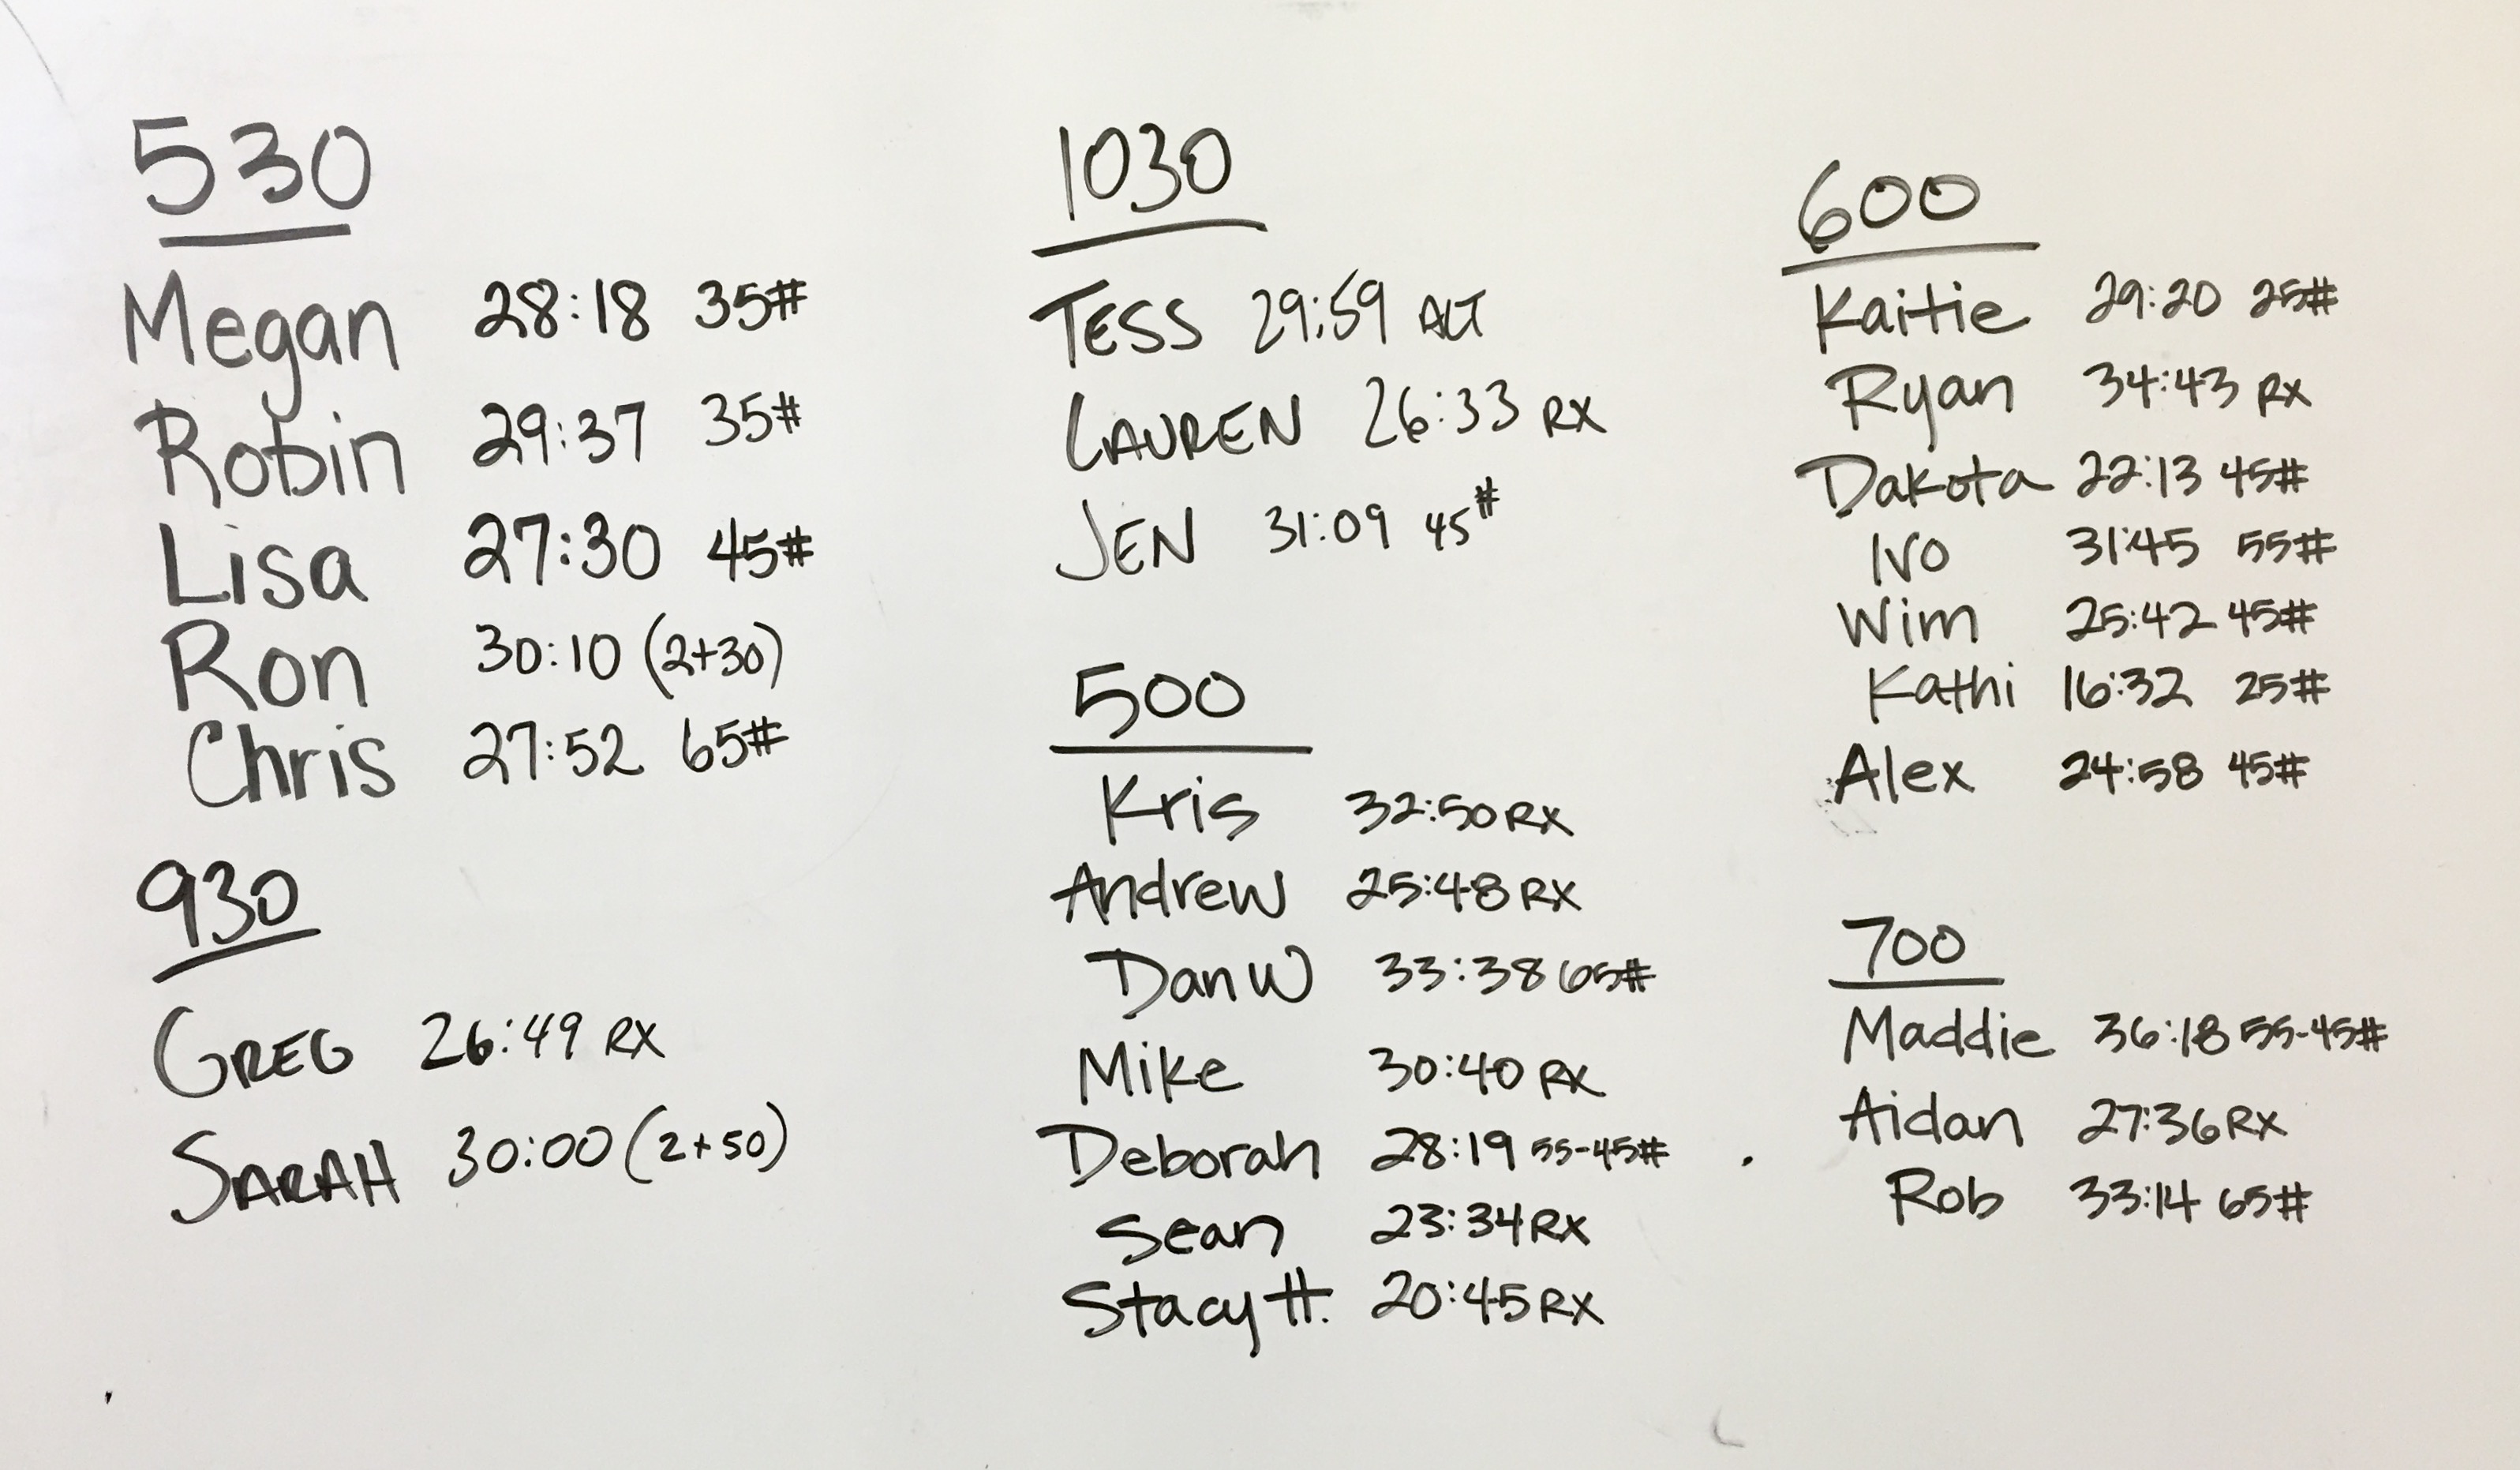 530
Megan 28:18 35#
Robin 29:37 35#
Lisa 27:30 45#
Ron 30:10 (2+30)
Chris 27:52 65#
930
GREG 26:49 RX
SARAH 30:00 (2+50)
1030
TESS 29:59 ALT
LAUREN 26:33 RX
JEN 31:09 45#
500
Kris 32:50 RX
Andrew 25:48 RX
Dan W 33:38 65#
Mike 30:40 RX
Deborah 28:19 55-45#
Sean 23:34 RX
Stacy H. 20:45 RX
600
Kaitie 29:20 25#
Ryan 34:43 RX
Dakota 22:13 45#
IVO 31:45 55#
Wim 25:42 45#
Kathi 16:32 25#
Alex 24:58 45#
700
Maddie 36:18 55-45#
Aidan 27:36 RX
Rob 33:14 65#